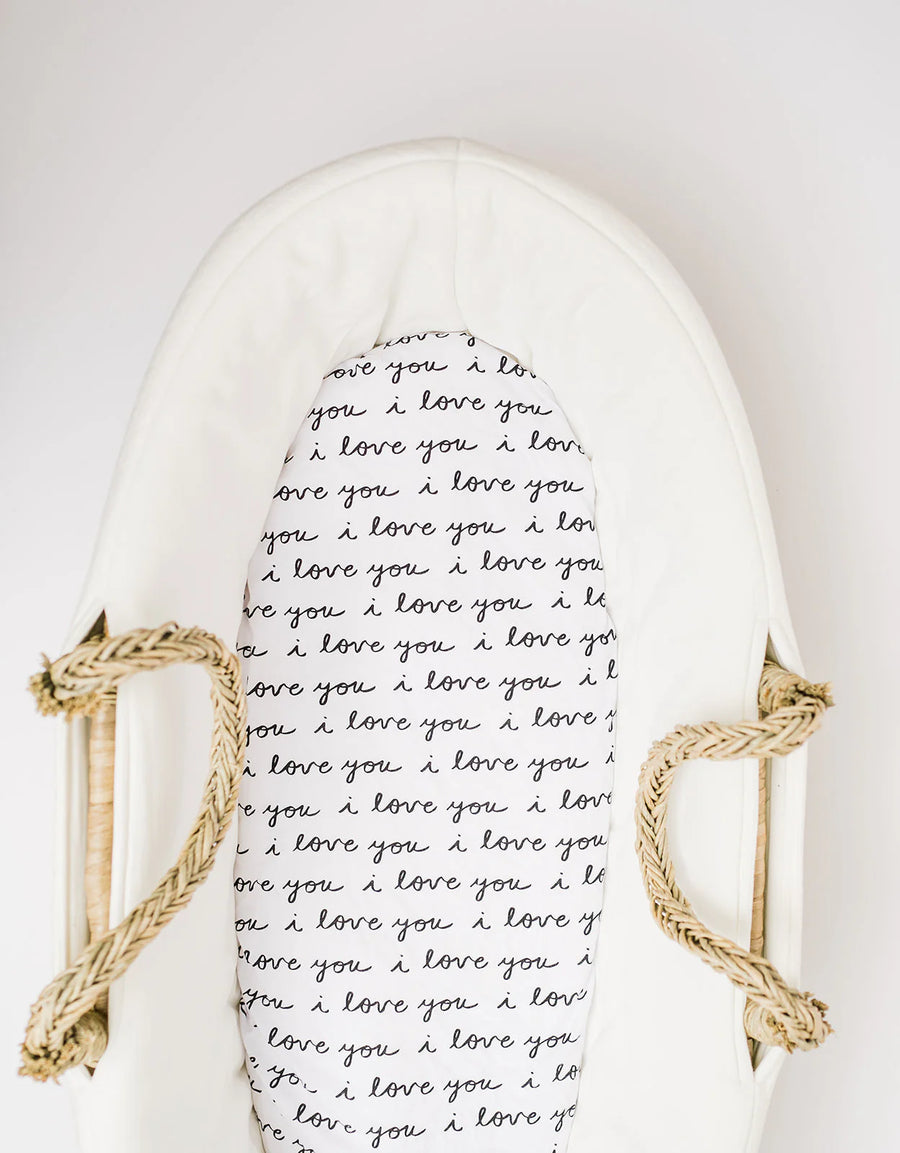 love y
love you i lov
you i love you
i love you i love
ove you i love you
you i love you i lov
i love you i love you
ve you i love you i lo
u i love you i love you
love you i love you i l
you i love you i love y
i love you i love you i
e you i love you i love
i love you i love you
ove you i love you i lo
ou i love you i love y
love you i love you i
you i love you i love
i love you i love you
you i love you i lo
i love you i love yo
ve you